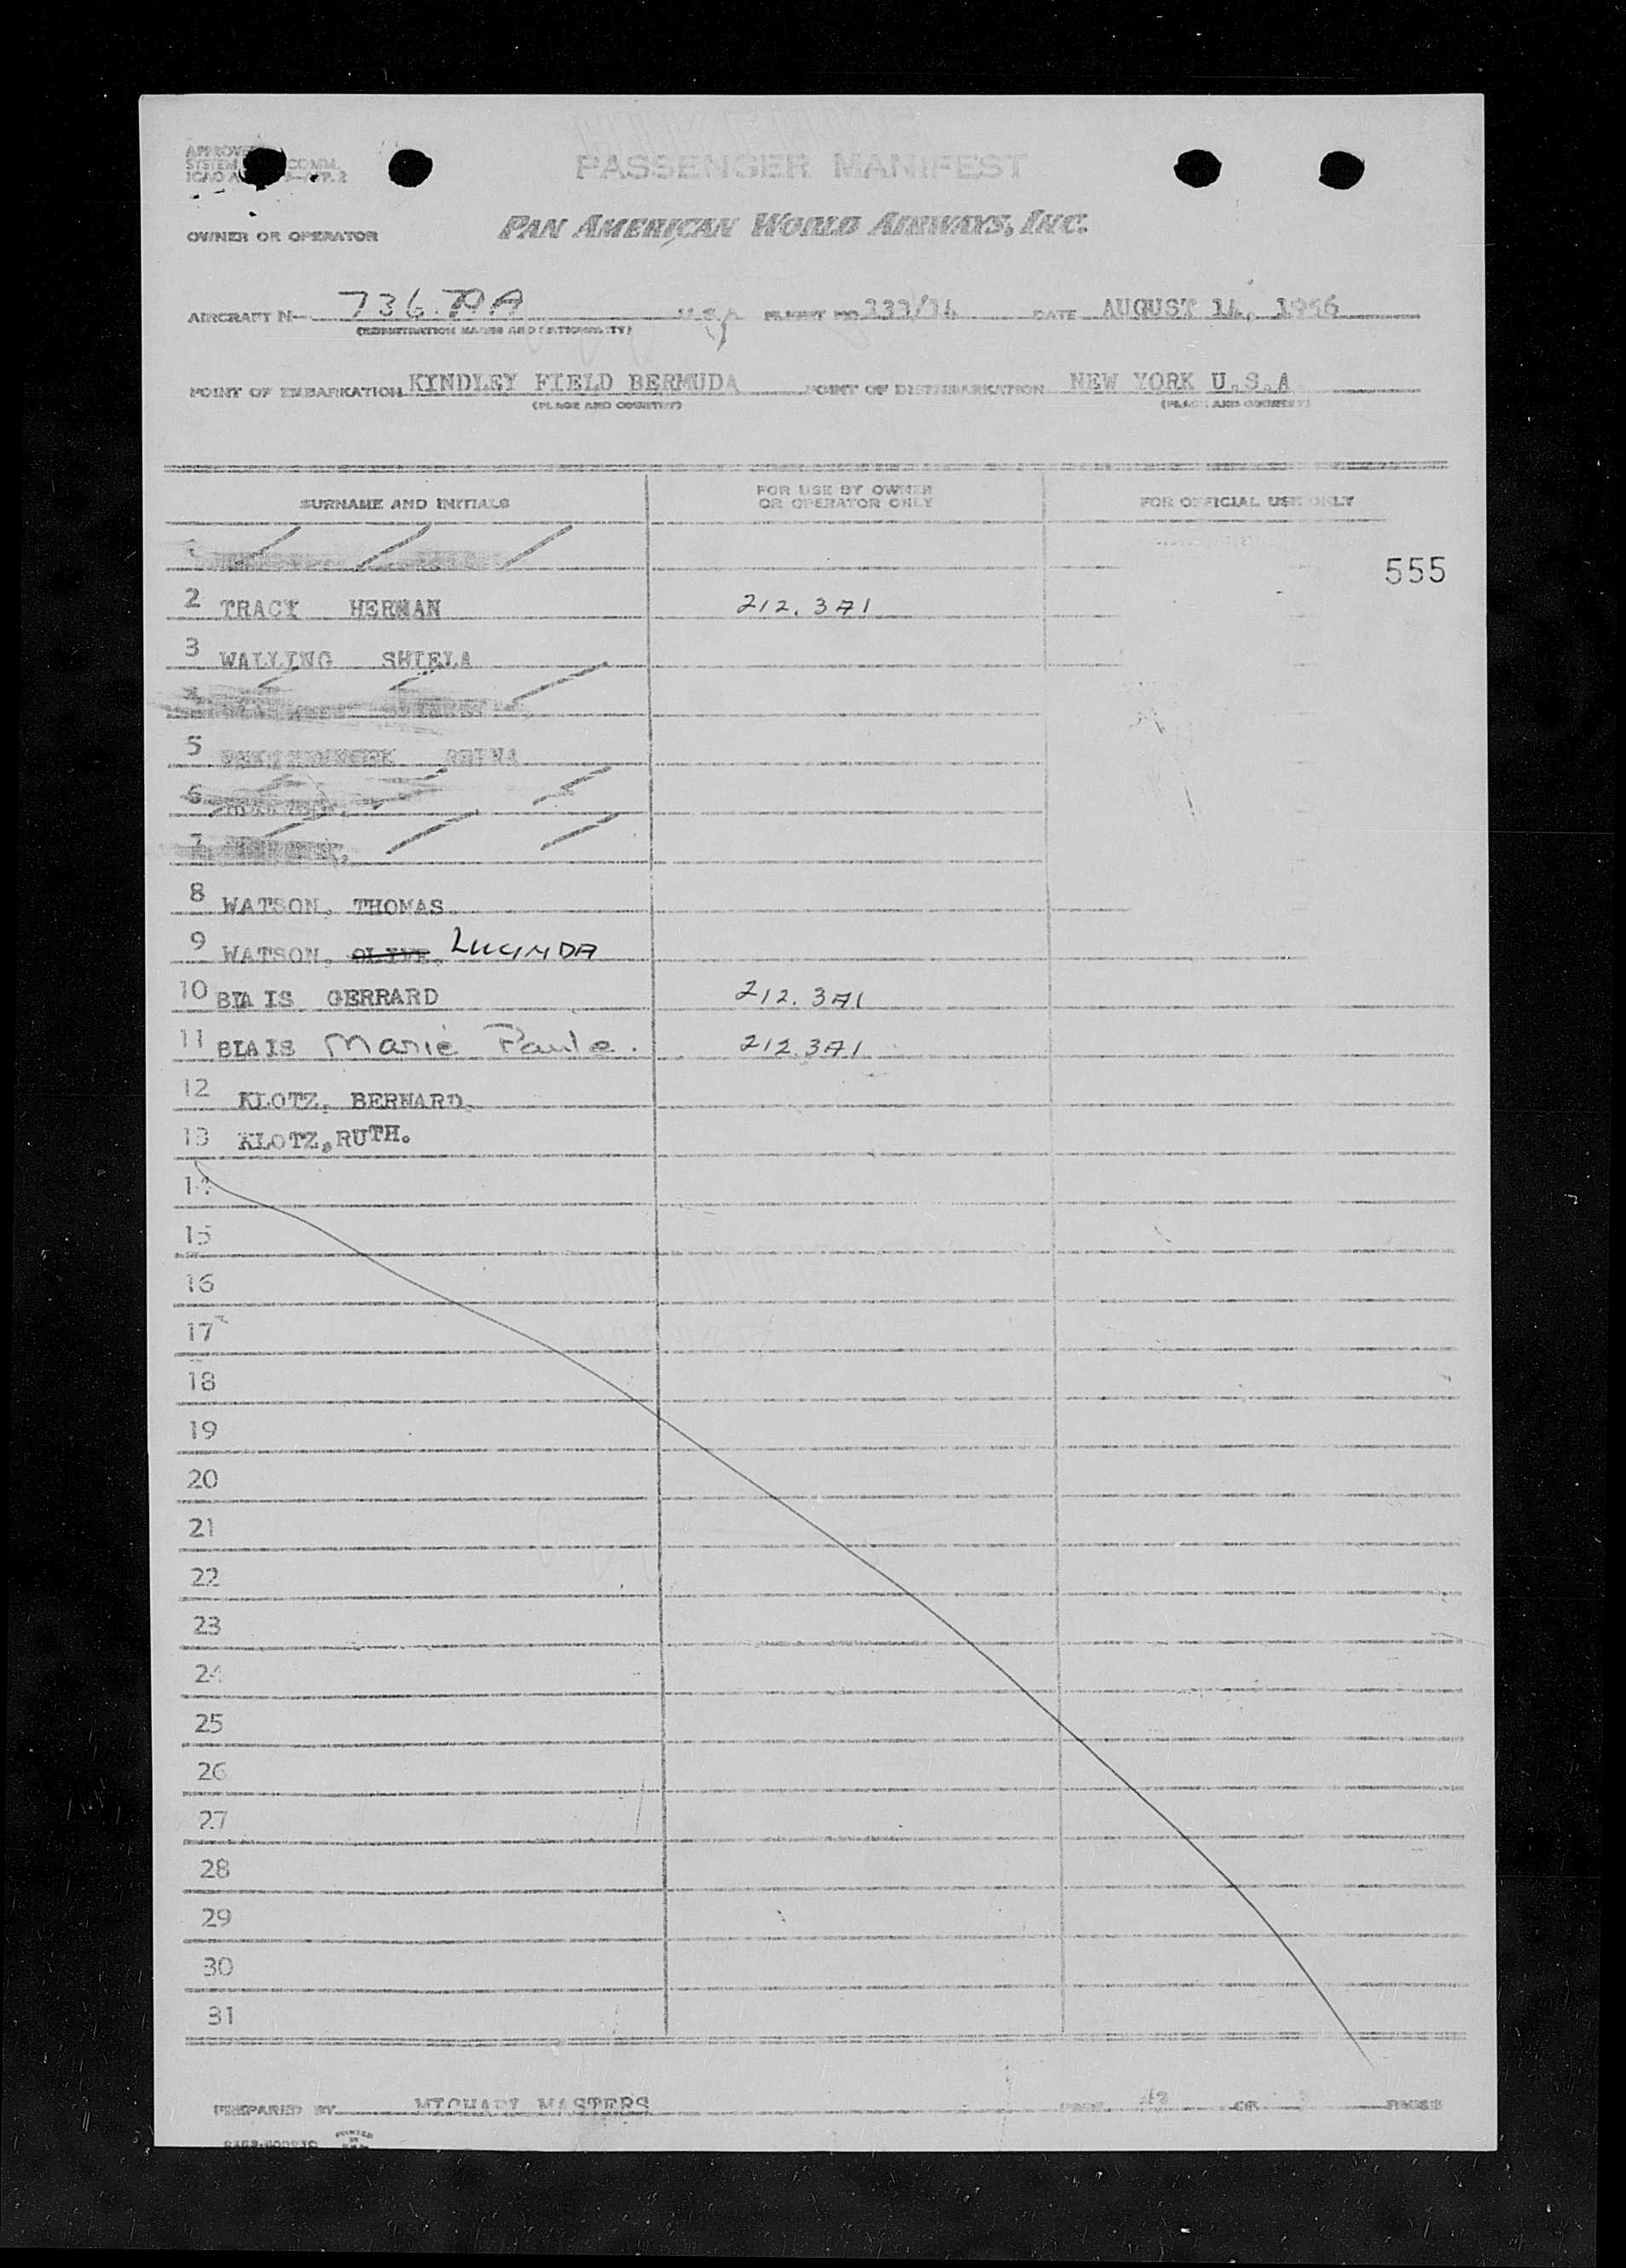 PASSENGER MANIFEST
OWNER OR OPERATOR PAN AMERICAN WORLD AIRWAYS, INC.
AIRCRAFT N- 736 PA FLIGHT NO DATE AUGUST 14, 1956
(REGISTRATION MARKS AND NATIONALITY)
POINT OF EMBARKATION KINDLEY FIELD BERMUDA POINT OF DISEMBARKATION NEW YORK U.S.A
(PLACE AND COUNTRY) (PLACE AND COUNTRY)
SURNAME AND INITIALS FOR USE BY OWNER OR OPERATOR ONLY FOR OFFICIAL USE ONLY
555
2 TRACY HERMAN 212.3A1
3 WALLING SHIELA
4
5
6
7
8 WATSON, THOMAS
9 WATSON, OLIVE, LUCINDA
10 BLAIS GERRARD 212.3A1
11 BLAIS Marie Paule. 212.3A1
12 KLOTZ, BERNARD.
13 KLOTZ, RUTH.
14
15
16
17
18
19
20
21
22
23
24
25
26
27
28
29
30
31
PREPARED BY MICHAEL MASTERS PAGE OF PAGES